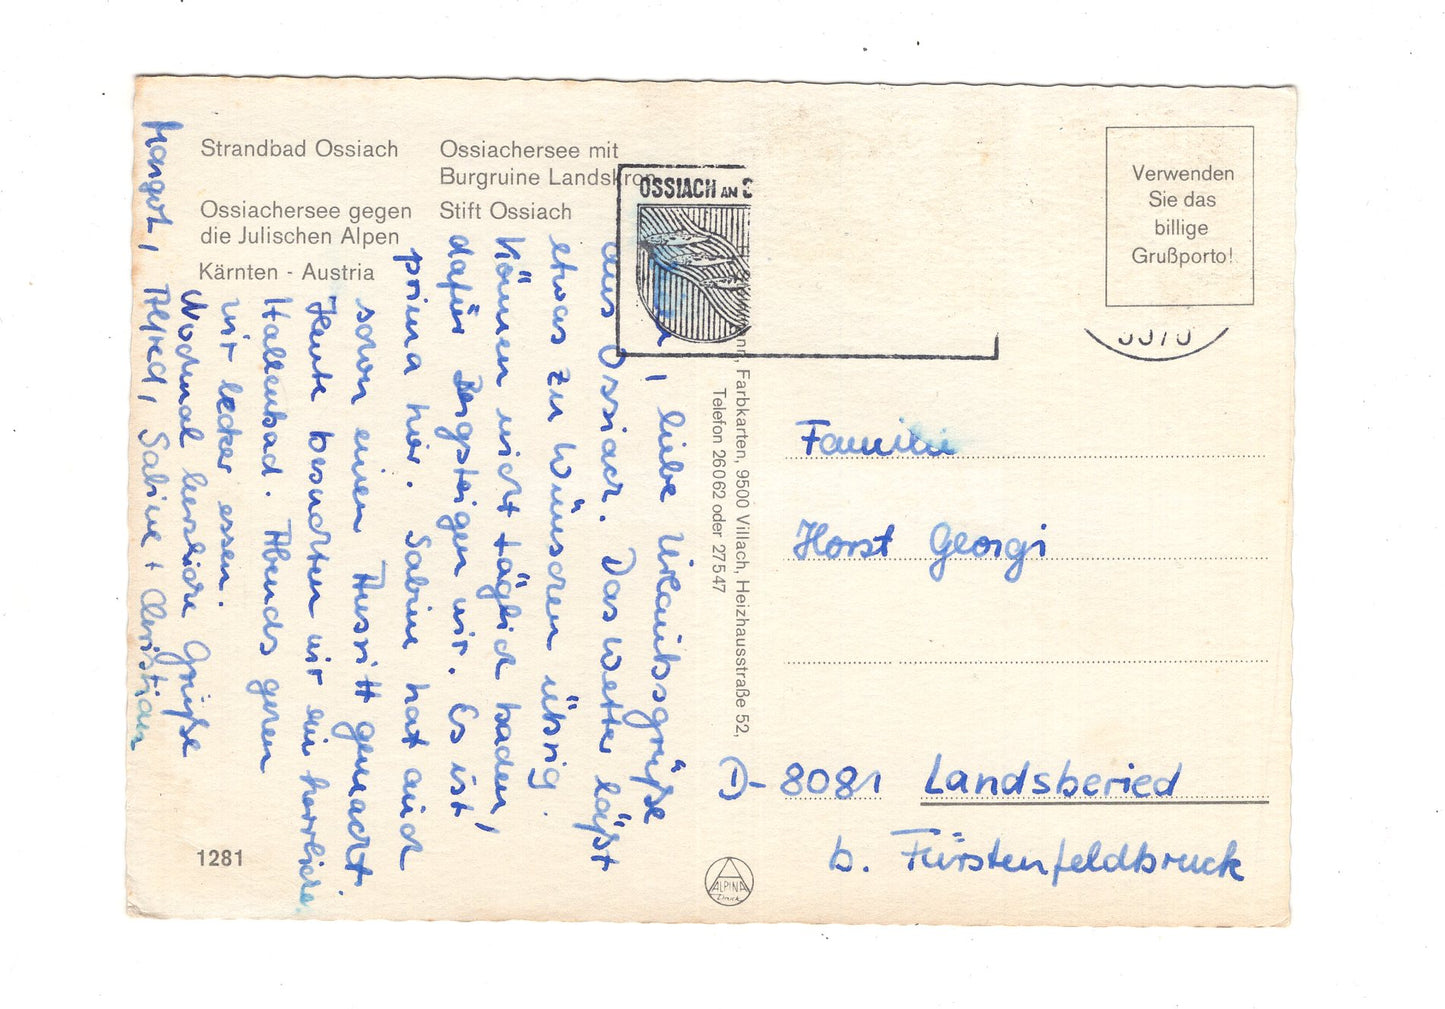 Strandbad Ossiach
Ossiachersee mit
Burgruine Landskron
Ossiachersee gegen
die Julischen Alpen
Stift Ossiach
Kärnten - Austria
OSSIACH AM S
Verwenden
Sie das
billige
Grußporto!
, liebe Urlaubsgrüße
aus Ossiach. Das Wetter läßt
etwas zu wünschen übrig.
Können nicht täglich baden,
dafür Bergsteigen wir. Es ist
prima hier. Sabine hat auch
schon einen Ausritt gemacht.
Heute besuchten wir ein herrliche
Hallenbad. Abends gehen
wir lecker essen.
Nochmal herzliche Grüße
Alfred, Sabine + Christian
Margot,
Farbkarten, 9500 Villach, Heizhausstraße 52,
Telefon 26062 oder 27547
Familie
Horst Georgi
D- 8081 Landsberied
b. Fürstenfeldbruck
1281
ALPINA
Druck